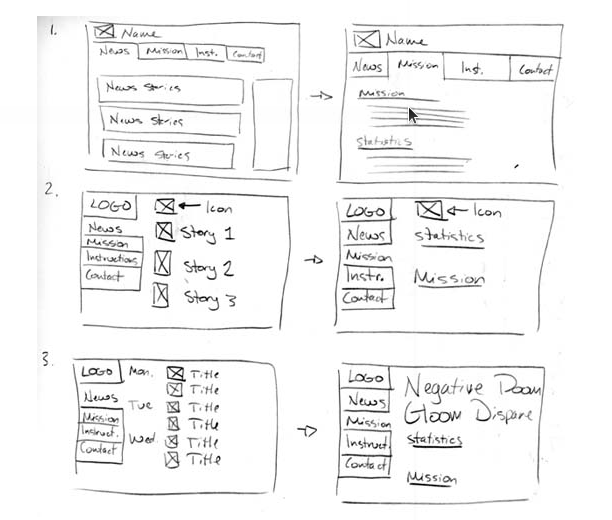 1.
Name
News Mission Inst. Contact
News Stories
News Stories
News Stories
Name
News Mission Inst. Contact
Mission
Statistics
2.
LOGO
News
Mission
Instructions
Contact
Icon
Story 1
Story 2
Story 3
LOGO
News
Mission
Instr.
Contact
Icon
Statistics
Mission
3.
LOGO
News
Mission
Instruct.
Contact
Mon. Title
Title
Tue Title
Title
Wed. Title
Title
LOGO
News
Mission
Instruct.
Contact
Negative Doom
Gloom Dispare
Statistics
Mission